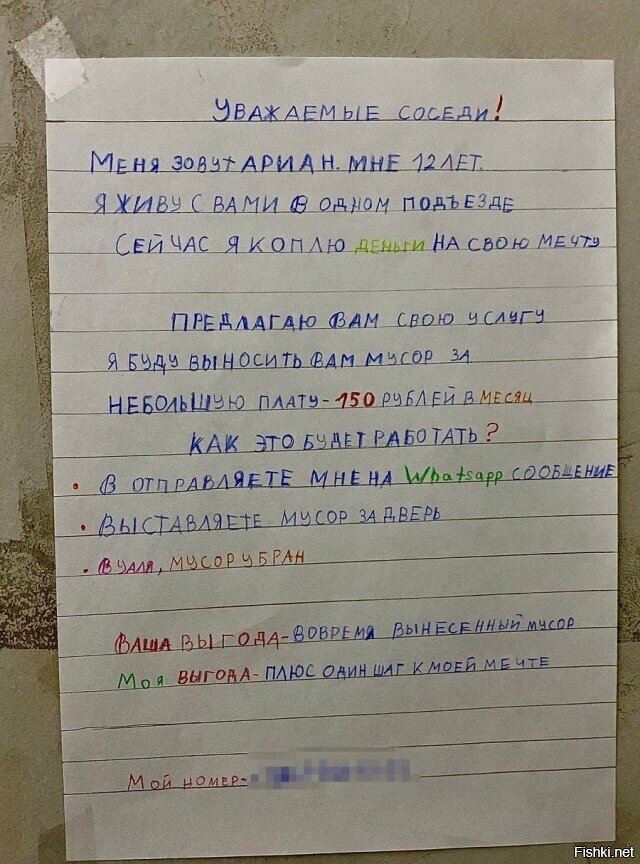 УВАЖАЕМЫЕ СОСЕДИ!
МЕНЯ ЗОВУТ АРИАН. МНЕ 12 ЛЕТ.
Я ЖИВУ С ВАМИ В ОДНОМ ПОДЪЕЗДЕ
СЕЙЧАС Я КОПЛЮ ДЕНЬГИ НА СВОЮ МЕЧТУ
ПРЕДЛАГАЮ ВАМ СВОЮ УСЛУГУ
Я БУДУ ВЫНОСИТЬ ВАМ МУСОР ЗА
НЕБОЛЬШУЮ ПЛАТУ-150 РУБЛЕЙ В МЕСЯЦ
КАК ЭТО БУДЕТ РАБОТАТЬ?
• В ОТПРАВЛЯЕТЕ МНЕ НА Whatsapp СООБЩЕНИЕ
• ВЫСТАВЛЯЕТЕ МУСОР ЗА ДВЕРЬ
• ВУАЛЯ, МУСОР УБРАН
ВАША ВЫГОДА-ВОВРЕМЯ ВЫНЕСЕННЫЙ МУСОР
МОЯ ВЫГОДА-ПЛЮС ОДИН ШАГ К МОЕЙ МЕЧТЕ
МОЙ НОМЕР-
Fishki.net